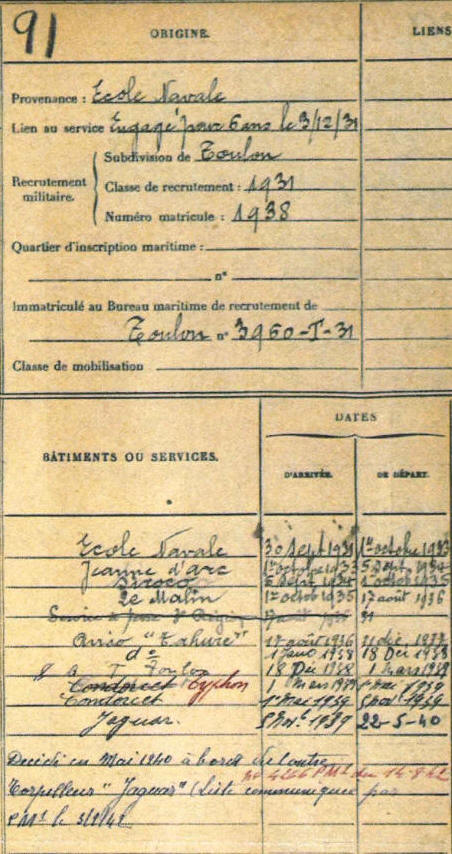 91
ORIGINE.
LIENS
Provenance : Ecole Navale
Lien au service Engagé pour 6 ans le 3/12/31
Recrutement militaire.
Subdivision de Toulon
Classe de recrutement : 1931
Numéro matricule : 1938
Quartier d'inscription maritime :
n°
Immatriculé au Bureau maritime de recrutement de
Toulon n° 3960-T-31
Classe de mobilisation
BÂTIMENTS OU SERVICES.
DATES
D'ARRIVÉE.
DE DÉPART.
Ecole Navale 30 Sept 1931 1er octobre 1933
Jeanne d'arc 1er octobre 1933 5 Sept 1934
Siroco 6 Sept 1934 1 octob 1935
Le Malin 1er octob 1935 17 août 1936
Service à 3e Région 17 août
Aviso "Tahure" 17 août 1936 31 déc. 1937
d° 1 Janv 1938 18 Déc 1938
Toulon 18 Déc 1938 1 Mars 1939
Condorcet Typhon 1 Mars 1939 1er Mai 1939
Condorcet 1er Mai 1939 5 Nov 1939
Jaguar. 5 Nov. 1939 22-5-40
Décédé en Mai 1940 à bord du Contre
n° 4266 PM1 du 14-8-42
Torpilleur "Jaguar" (Liste communiquée par
PM1 le